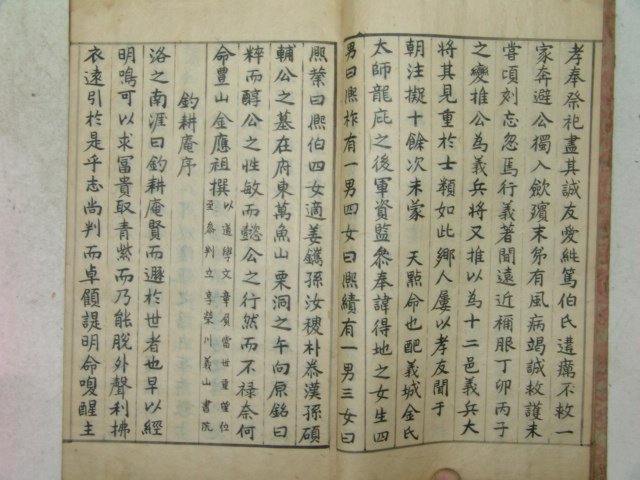 孝奉祭祀盡其誠友愛純篤伯氏遘癘不救一
家奔避公獨入歛殯末第有風病竭誠救護未
嘗頃刻忘忽焉行義著聞遠近禰服丁卯丙子
之變推公為義兵將又推以為十二邑義兵大
將其見重於士類如此鄉人屢以孝友聞于
朝注擬十餘次未蒙 天點命也配義城金氏
太師龍庇之後軍資監叅奉諱得地之女生四
男曰熙祚有一男四女曰熙績有一男三女曰
熙業曰熙伯四女適姜鑴孫汝穓朴泰漢孫碩
輔公之墓在府東萬魚山栗洞之午向原銘曰
粹而醇公之性敏而懿公之行然而不禄奈何
命豊山金應祖撰 以道學文章負當世重望位
至叅判立享榮川義山書院
釣耕庵序
洛之南涯曰釣耕庵賢而遯於世者也早以經
明鳴可以求冨貴取青紫而乃能脫外聲利拂
衣遠引於是乎志尚判而卓顧諟明命喚醒主